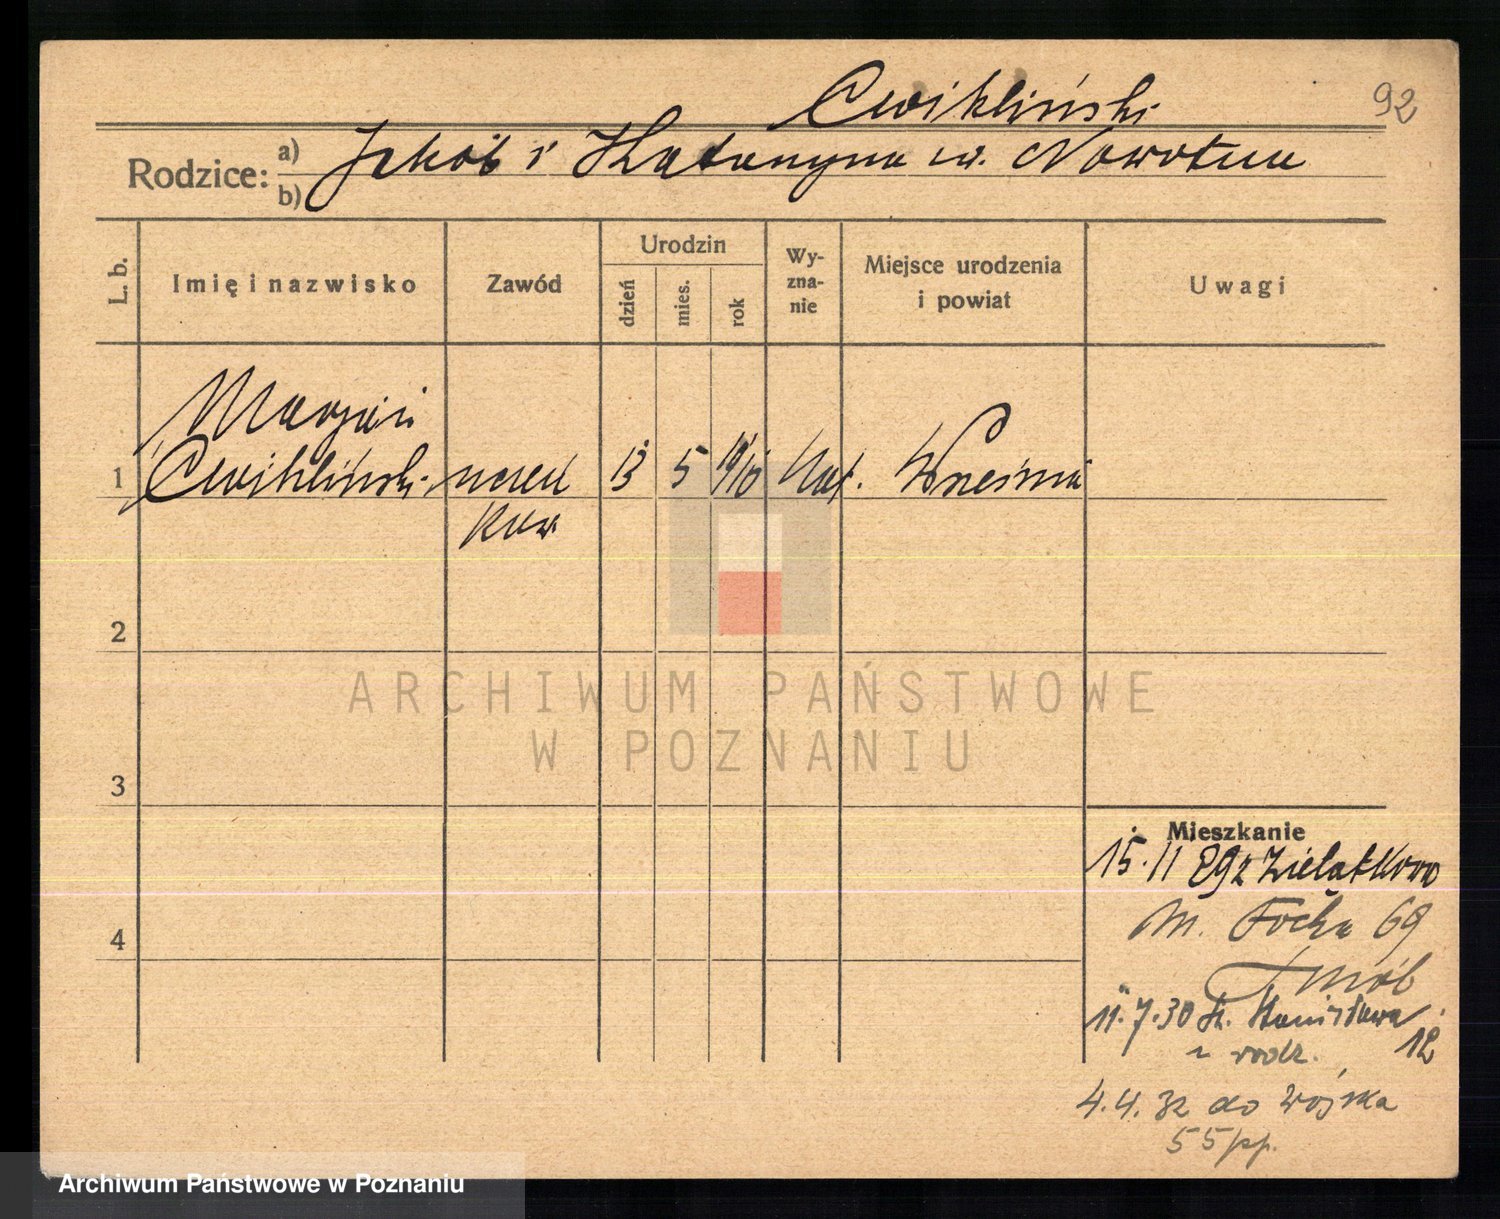 92
Cwikliński
Rodzice: a) Jakób i Katarzyna ur. Nowotna
b)
L. b. Imię i nazwisko Zawód Urodzin Wy-zna-nie Miejsce urodzenia i powiat Uwagi
dzień mies. rok
Marjan
1 Cwikliński uczeń 13 5 1910 kat. Września
2
3
4
Mieszkanie
15.11 29 z Zielątkowo
M. Focha 69
11.7.30 Stanisława 12
u rodz.
4.4.32 do wojska
55 pp.
ARCHIWUM PAŃSTWOWE
W POZNANIU
Archiwum Państwowe w Poznaniu